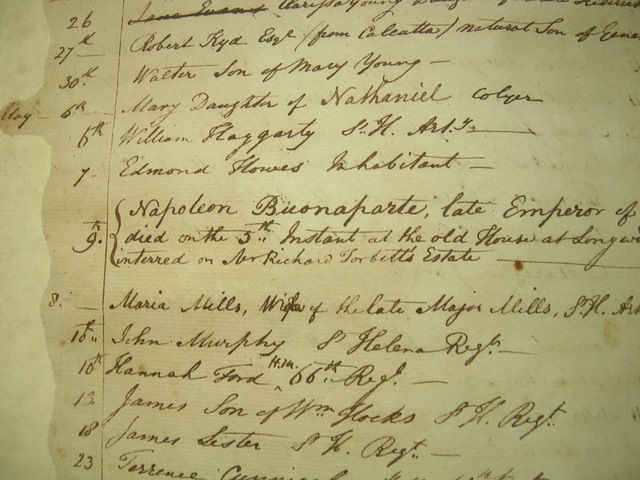 26 Jane Evans Clarissa Young Daughter of
27th Robert Kyd Esqr. (from Calcutta) natural Son of
30th Walter Son of Mary Young —
May 6th Mary Daughter of Nathaniel Colyer
6th William Haggarty St. H. Arty. —
7 Edmond Howes Inhabitant —
Napoleon Buonaparte, late Emperor of
9th. died on the 5th Instant at the old House at Longw
interred on Mr Richard Torbett's Estate —
8. — Maria Mills, Wife of the late Major Mills, St. H. Art
10th John Murphy St Helena Regt. —
10th Hannah Ford H.M. 66th Regt. —
13 James Son of Wm Hocks St H. Regt.
18 James Lister St H. Regt. —
23 Terrence